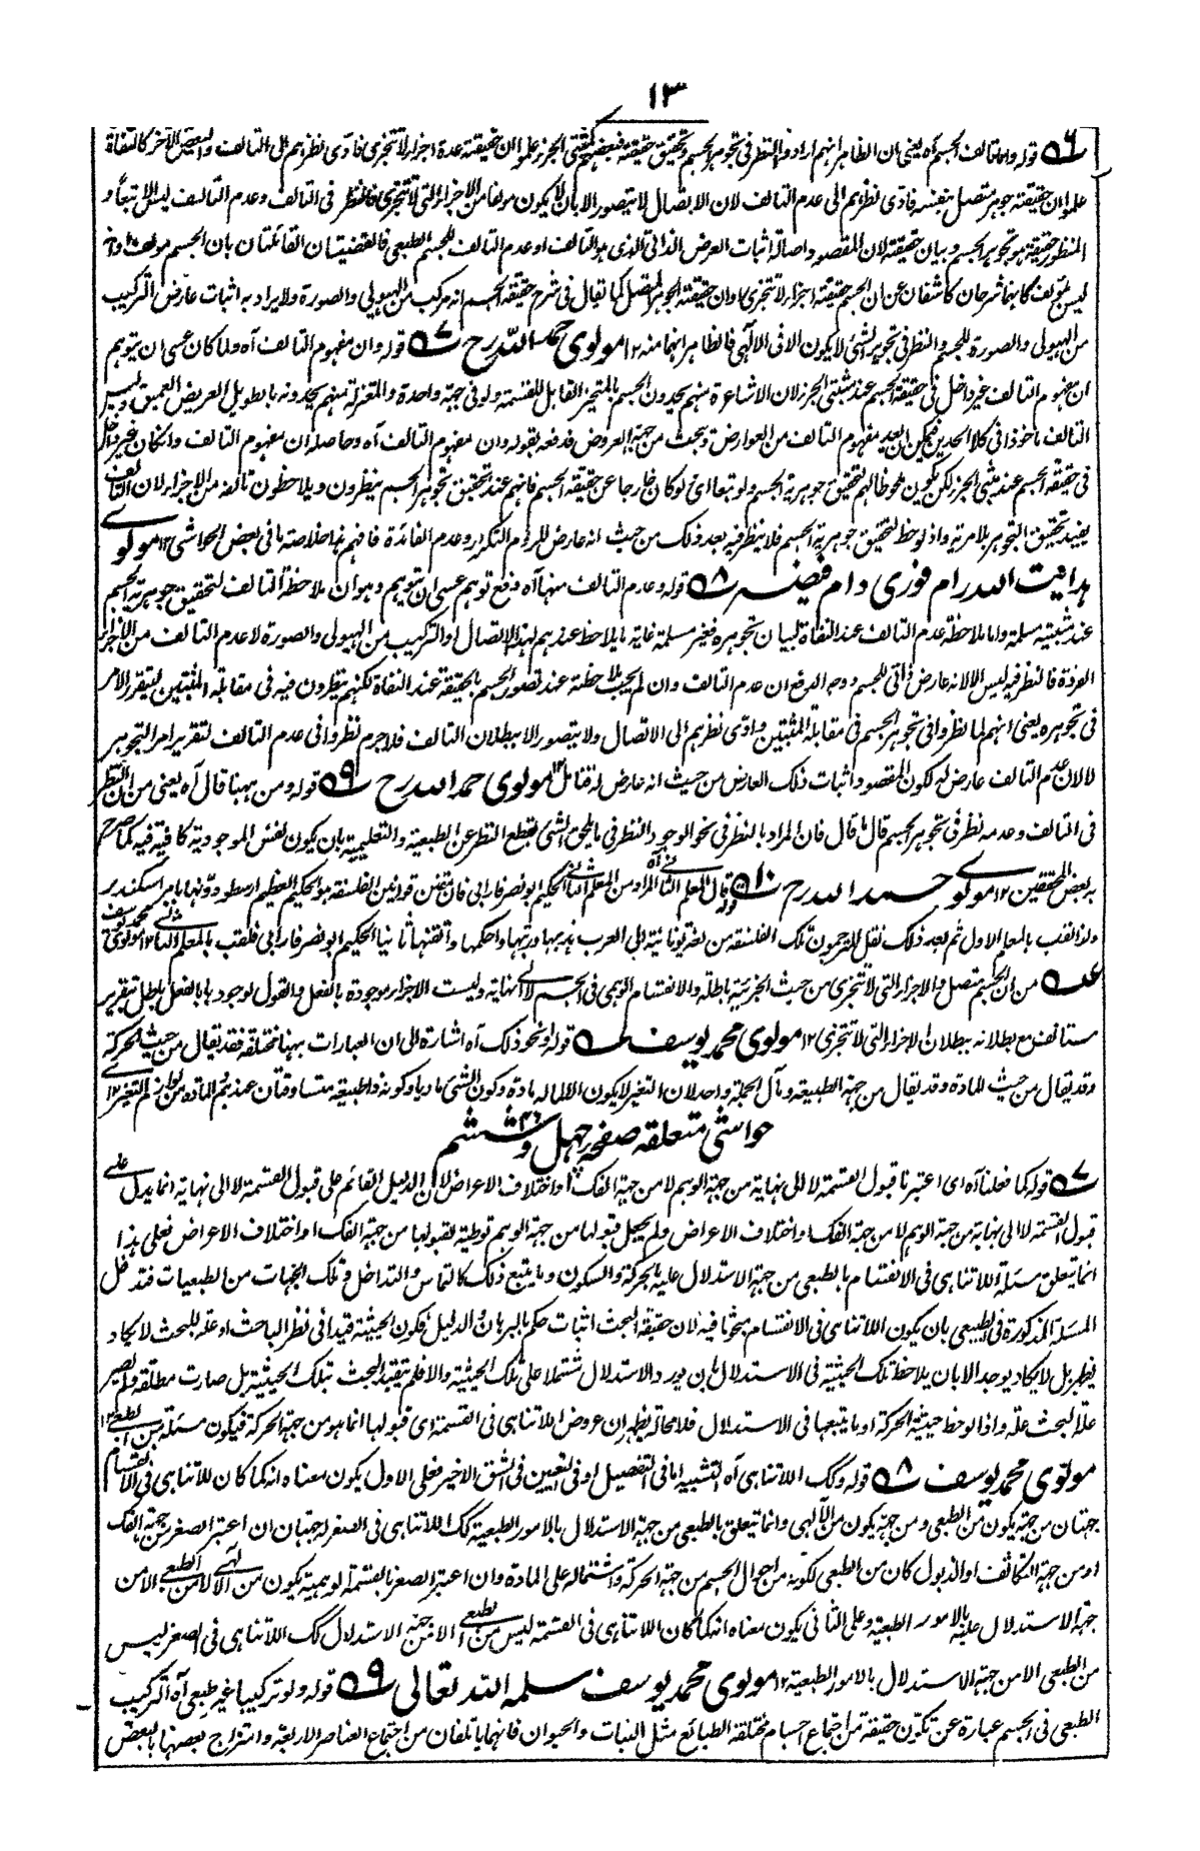 ۱۳
۶ قوله واما تالف الجسم آه يعنى بان الظاهر انهم ارادوا النظر فى تجوهر الجسم وتحقيق حقيقته فبعضهم كمثبتى الجزء علموا ان حقيقته عدة اجزاء لا تتجزى فادى نظرهم الى التالف والبعض الآخر كالنفاة
علموا ان حقيقته جوهر متصل بنفسه فادى نظرهم الى عدم التالف لان الاتصال لا يتصور الا بان لا يكون مولفا من الاجزاء التى لا تتجزى فالنظر فى التالف وعدم التالف ليس الا تبعا و
المنظور حقيقة هو تجوهر الجسم وبيان حقيقته لان المقصود اصالة اثبات العرض الذاتى الذى هو التالف او عدم التالف للجسم الطبعى فالقضيتان القائلتان بان الجسم مولف وان
ليس بمولف كانهما شرحان كاشفان عن ان الجسم حقيقته اجزاء لا تتجزى او ان حقيقته الجوهر المتصل كما يقال فى شرح حقيقة الجسم انه مركب من الهيولى والصورة ولا يراد به اثبات عارض التركيب
من الهيولى والصورة للجسم والنظر فى تجوهر الشئ لا يكون الا فى الالهى فالظاهر انهما منه ۱۲ مولوى حمد الله رح ۷ قوله وان مفهوم التالف آه ولما كان عسى ان يتوهم
ان مفهوم التالف غير داخل فى حقيقة الجسم عند مثبتى الجزء لان الاشاعرة منهم يحدون الجسم بالمتحيز القابل للقسمة ولو فى جهة واحدة والمعتزلة منهم يحدونه بالطويل العريض العميق وليس
التالف ماخوذا فى كلا الحدين فيمكن ان يعد مفهوم التالف من العوارض ويبحث من جهة العروض فدفعه بقوله وان مفهوم التالف آه وحاصله ان مفهوم التالف وان كان غير داخل
فى حقيقة الجسم عند مثبتى الجزء لكن يكون ملحوظا لهم لتحقيق جوهرية الجسم ولو تبعا اى لو كان خارجا عن حقيقة الجسم فانهم عند تحقيق تجوهر الجسم ينظرون ويلاحظون تالفه من الاجزاء لان التالف
يفيد تحقيق التجوهر بلا مرية واذا لوحظ لتحقيق جوهرية الجسم فلا ينظر فيه بعد ذلك من حيث انه عارض للزوم التكرير وعدم الفائدة فافهم هذا خلاصة ما فى بعض الحواشى ۱۲ مولوى
هدايت الله رام فورى دام فيضه ۸ قوله وعدم التالف منها آه دفع توهم عسى ان يتوهم وهو ان ملاحظة التالف لتحقيق جوهرية الجسم
عند مثبتيه مسلمة واما ملاحظة عدم التالف عند النفاة لبيان تجوهره فغير مسلمة غاية ما يلاحظ عندهم لهذا الاتصال او التركيب من الهيولى والصورة لا عدم التالف من الاجزاء
الفردة فالنظر فيه ليس الا لانه عارض ذاتى للجسم ووجه الدفع ان عدم التالف وان لم يجب ملاحظته عند تصور الجسم بالحقيقة عند النفاة لكنهم ينظرون فيه فى مقابلة المثبتين ليتقرر الامر
فى تجوهره يعنى انهم لما نظروا فى تجوهر الجسم فى مقابلة المثبتين وادى نظرهم الى الاتصال ولا يتصور الا ببطلان التالف فلا جرم نظروا فى عدم التالف لتقرير امر التجوهر
لا لان عدم التالف عارض له ككون المقصود اثبات ذلك العارض من حيث انه عارض له فتامل ۱۲ مولوى حمد الله رح ۹ قوله ومن ههنا قال آه يعنى من ان النظر
فى التالف وعدمه نظر فى تجوهر الجسم قال ما قال فان المراد بالنظر فى نحو الوجود النظر فى ما يلحق الشئ بقطع النظر عن الطبعية والتعليمية بان يكون نفس الموجودية كافية فيه كما صرح
به بعض المحققين ۱۲ مولوى حمد الله رح ۱۰ قوله قال المعلم الثانى آه المراد من المعلم الثانى الحكيم ابو نصر فارابى فان مقنن قوانين الفلسفة هو الحكيم العظيم ارسطو دونها بامر اسكندر
ولذا لقب بالمعلم الاول ثم بعد ذلك نقل المترجمون تلك الفلسفة من لغة يونانية الى العرب هذبها ورتبها واحكمها واتقنها ثانيا الحكيم ابو نصر فارابى فلقب بالمعلم الثانى ۱۲ مولوى محمد يوسف
من ان الجسم متصل والاجزاء التى لا تتجزى من حيث الجزئية باطلة والانقسام الوهمى فى الجسم لا الى نهاية وليست الاجزاء موجودة بالفعل والقول بوجودها بالفعل باطل بتقرير
مستانف مع بطلانه ببطلان الاجزاء التى لا تتجزى ۱۲ مولوى محمد يوسف قوله ونحو ذلك آه اشارة الى ان العبارات ههنا مختلفة فقد يقال من حيث الحركة
وقد يقال من حيث المادة وقد يقال من جهة الطبيعة ومآل الجملة واحد لان التغير لا يكون الا لما له مادة وكون الشئ ماديا وكونه ذا طبيعة متساوقتان عندهم المادة من لوازم التغير ۱۲
حواشى متعلقه صفحه چهل و ششم ۴۶
۷ قوله كما فعلنا آه اى اعتبرنا قبول القسمة لا الى نهاية من جهة الوهم لا من جهة الفك او اختلاف الاعراض لان الدليل القائم على قبول القسمة لا الى نهاية انما يدل على
قبول القسمة لا الى نهاية من جهة الوهم لا من جهة الفك او اختلاف الاعراض ولم يجعل قبولها من جهة الوهم توطية لقبولها من جهة الفك او اختلاف الاعراض فعلى هذا
انما يتعلق مسئلة اللاتناهى فى الانقسام بالطبعى من جهة الاستدلال عليه بالحركة والسكون وما يتبع ذلك كالتماس والتداخل وتلك الجهات من الطبعيات فتدخل
المسئلة المذكورة فى الطبيعى بان يكون اللاتناهى فى الانقسام مبحوثا فيه لان حقيقة البحث اثبات حكم بالبرهان والدليل فكون الحيثية قيدا فى نظر الباحث او علة للبحث لا يكاد
يظهر بل لا يكاد يوجد الا بان يلاحظ تلك الحيثية فى الاستدلال بان يورد الاستدلال مشتملا على تلك الحيثية والا فلم يتقيد البحث بتلك الحيثية بل صارت مطلقة ولم تصير
علة البحث علة واذا لوحظ حيثية الحركة او ما يتبعها فى الاستدلال فلا محالة يظهر ان عروض اللاتناهى فى القسمة اى قبولها انما هو من جهة الحركة فيكون مسئلة من الطبعى ۱۲
مولوى محمد يوسف ۸ قوله وكك اللاتناهى آه التشبيه اما فى التفصيل او فى التعيين فى الشق الاخير فعلى الاول يكون معناه انه كما كان للاتناهى فى الانقسام
جهتان من جهة يكون من الطبعى ومن جهة يكون من الالهى وانما يتعلق بالطبعى من جهة الاستدلال بالامور الطبعية كك اللاتناهى فى الصغر له جهتان ان اعتبر الصغر من جهة الفك
او من جهة التكاثف او الذبول كان من الطبعى لكونه من احوال الجسم من جهة الحركة واشتماله على المادة وان اعتبر الصغر بالقسمة الوهمية يكون من الالهى لا من الطبعى الا من
جهة الاستدلال عليه بالامور الطبعية وعلى الثانى يكون معناه انه كما كان اللاتناهى فى القسمة ليس من الطبعى الا من جهة الاستدلال كك اللاتناهى فى الصغر ليس
من الطبعى الا من جهة الاستدلال بالامور الطبعية ۱۲ مولوى محمد يوسف سلمه الله تعالى ۹ قوله ولو تركيبا غير طبعى آه التركيب
الطبعى فى الجسم عبارة عن تكون حقيقة من اجتماع اجسام مختلفة الطبائع مثل النبات والحيوان فانهما ياتلفان من اجتماع العناصر الاربعة وامتزاج بعضها بالبعض